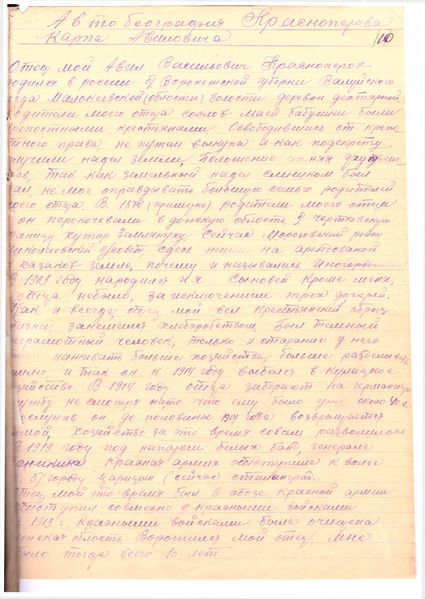 Автобеография Красноперова
Карпа Авиловича
10
Отец мой Авил Васильевич Красноперов
родился в россии б/ Воронежской губернии Валуйского
езда Малокеевской (области) волости деревни
родители моего отца совлов маей бабушки были
постными крестьянами. Освободившись от крепо
тного права не путем выкупа а как подекрету
лучили надел земли, Положение их
ось, так как земельный надел слишком был
ал, не мог оправдывать большую семью родителей
моего отца В 1874 (примерно) родители моего отца
он перекочевали в донскую область Чертковскую
таницу хутор Сейчас Мороговский район
совет Сдесь жили на арендованой
казаков земле, почему и назывались Иногородними
В 1909 году народился и я Сыновей Кроме меня,
отца небыло, за исключением троех дочерей.
Как и всегда отец мой вел Крестьянский образ
жизни, занемался хлеборобством был темный
еграмотный человек, только и старание у него
наживать больше хозяйства, больше
и так он к 1914 году выбелся в Кулацкое
хозяйство В 1914 году отца забирают на германскую
ужбу не смотря на то что ему было уже около 40 л.
рослужив он до половины 1917 года возвращается
мой, хозяйство за это время совсем развалилось
В 1919 году под напором белых банд, генерала
еникина Красная армия отступила к Волге
б/ городу царицын (сейчас сталинград
отец мой то время был в обозе Красной армии
отступил совмесно с Красными войсками.
1919 г. Красными войсками была очищена
онская область Воротился мой отец, мне
было тогда всего 10 лет